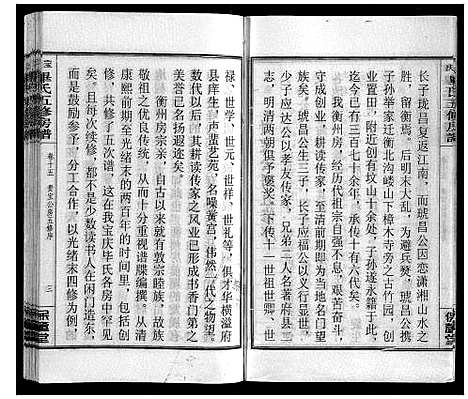 长子珑昌复返江南，而琥昌公因恋潇湘山水之
胜，留衡焉。后明末大乱，为避兵燹，琥昌公携
子孙举家迁衡北沟嵝山下樟木寺旁之古竹园，创
业置田，附近创有坟山十余处，子孙遂永籍于此，
至今已有三百七十余年，承传十有六代矣。
衡州房宗亲，经历代祖宗自强不息，衡苦奋斗，
至清朝前期，宗族兴旺发达，即为当地名门望
守成创业，耕读传家，
族。琥昌公生三子，长子应福公以义行受
少子应达公以孝友传家，兄弟二人名著府县二
志，清、明两朝倶予褒奖。下传十一世祖世卿、世
禄、世学、世元、世祥、世礼等，俱才华横溢府
县庠生，声蜚艺苑，名噪黉宫，伟然一代之物望。
数代以后，其耕读传家之风业已形成书香门第之
美誉已名扬遐迩矣。
衡州房宗亲，自古以来就有敦宗睦族，故族
敬祖之优良传统，从而十分重视谱牒编撰。从清
康熙前期至光绪末的两百年的时间里，包括创
修，共修了五次谱，这在我宝庆毕氏各房中罕见
矣。且每次续修，都不是少数读书人在闭门造东，
而是鼓励参予，分工合作，以光绪末四修为例，
毕氏五修房谱
卷十五
贵宝公房五修序
三